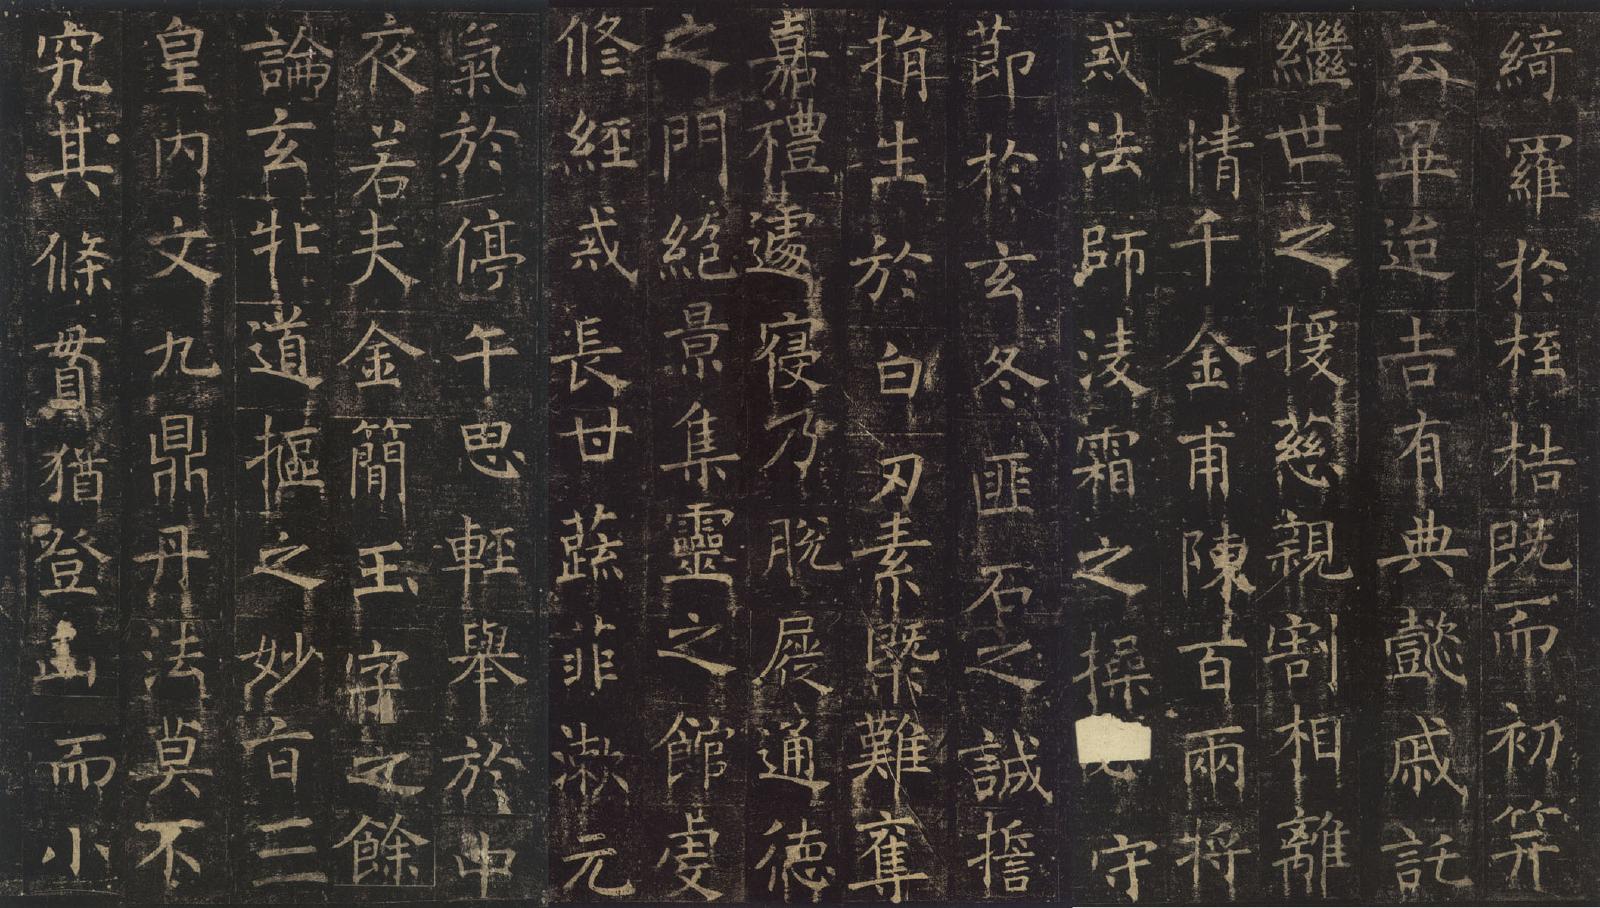 綺羅於桎梏既而初笄
云畢迨吉有典懿戚託
繼世之援慈親割相離
之情千金甫陳百兩將
戒法師淩霜之操守
節於玄冬匪石之誠誓
捐生於白刃素槩難奪
嘉禮遽寑乃脫屣通德
之門絕景集靈之館虔
修經戒長甘蔬菲漱元
氣於停午思輕舉於中
夜若夫金簡玉字之餘
論玄牝道樞之妙旨三
皇内文九鼎丹法莫不
究其條貫猶登山而小